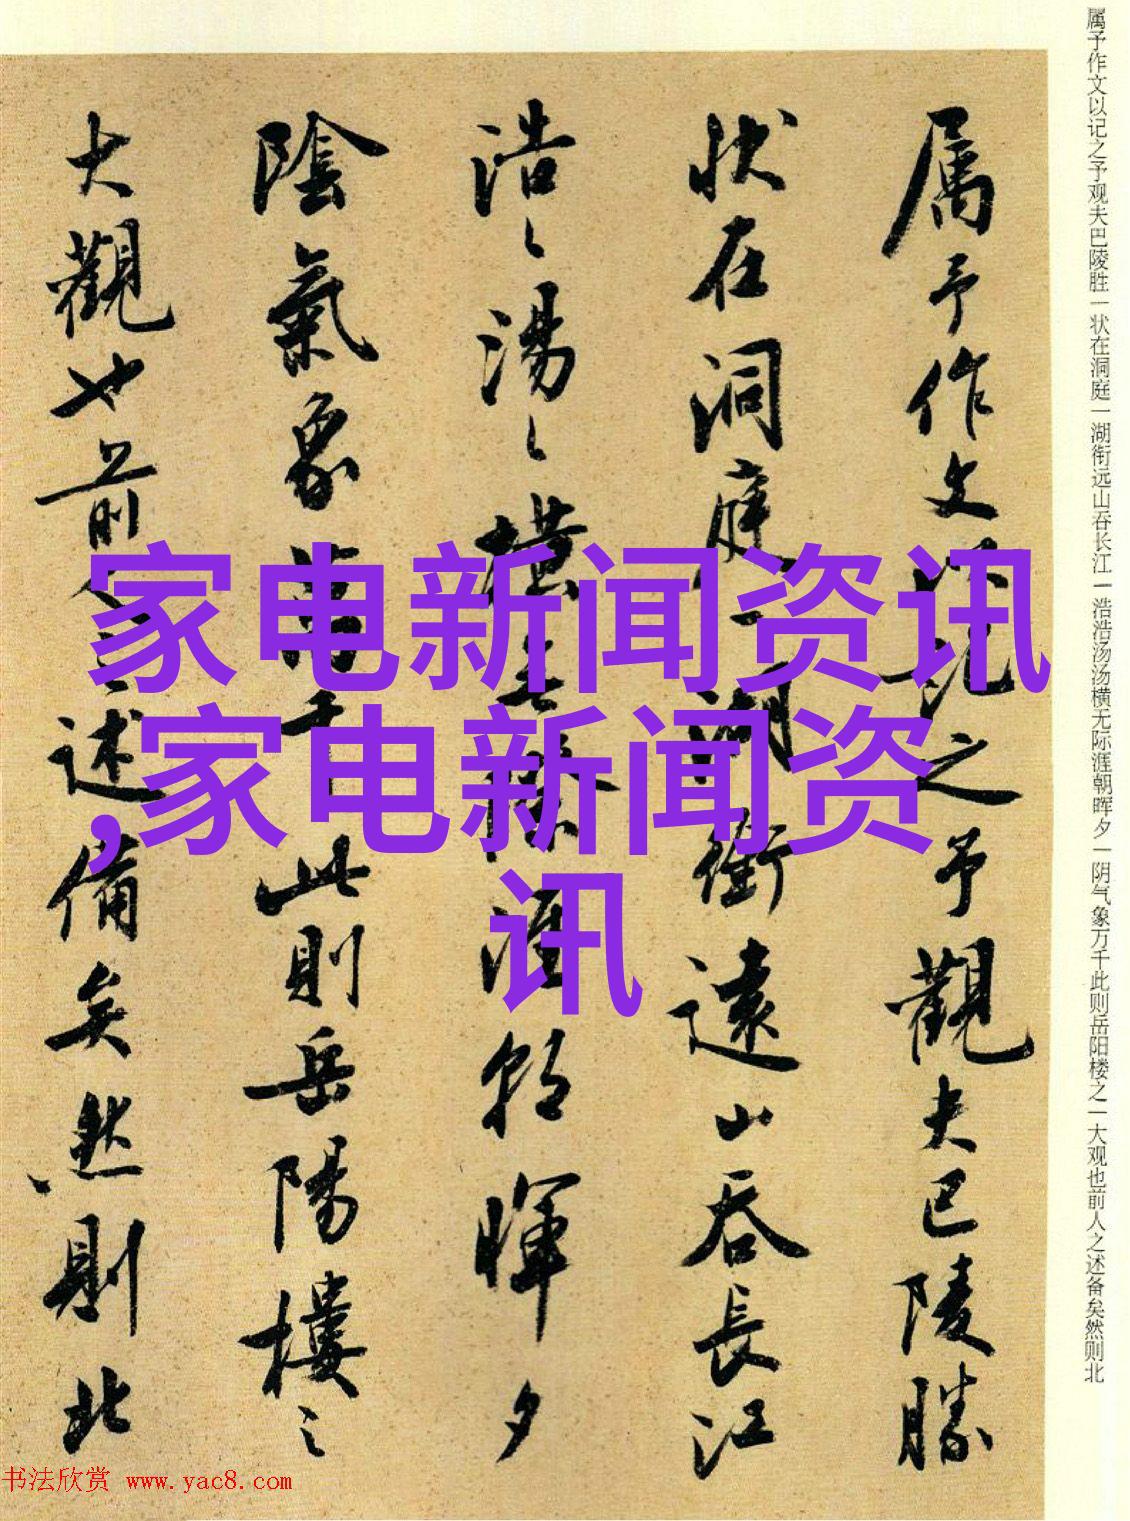 属予作文以记之予观夫巴陵胜一状在洞庭一湖衔远山吞长江一浩浩汤汤横无际涯朝晖夕一阴气象万千此则岳阳楼之一大观也前人之述备矣然则北
属予作文以记之予觀夫巴陵勝
状在洞庭一湖銜遠山吞長江
浩〻湯〻橫無際涯朝暉夕
陰氣象萬千此則岳陽樓之
大觀也前人之述備矣然則北
家电新闻资讯
,家电新闻资
讯
书法欣赏 www.yac8.com